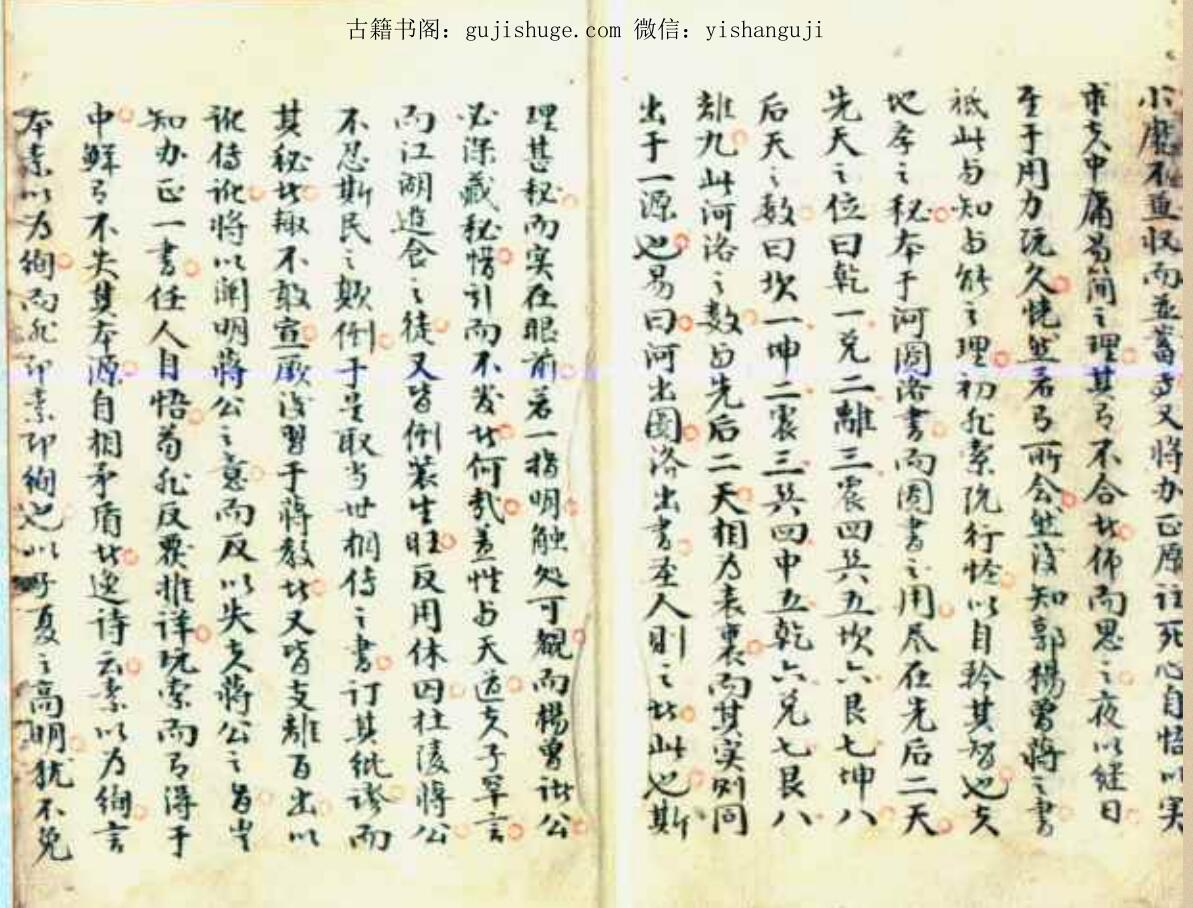 古籍书阁：gujishuge.com 微信：yishanguji
小 不 收而並蓄 又將办正原注死心自悟以实
求夫中庸易简之理其弓不合此俯而思之夜以继日
至于用力既久恍然若弓所会然後知郭楊曾蔣之书
祗此与知与能之理初非素隐行怪以自矜其智也夫
地孝之秘本于河圖洛書而圖書之用尽在先后二天
先天之位曰乾一兑二離三震四巽五坎六艮七坤八
后天之数曰坎一坤二震三巽四中五乾六兑七艮八
離九此河洛之数与先后二天相为表裏而其实则同
出于一源也易曰河出圖洛出書圣人则之此此也斯
理甚秘而实在眼前若一指明触処可覩而楊曾 公
必深藏秘惜引而不发此何哉盖性与天道夫子罕言
而江湖造食之徒又皆倒装生旺反用休囚杜陵蔣公
不忍斯民之颠倒于是取当世相传之書订其纰谬而
其秘此 不敢宣厥後習于蔣教此又皆支離百出以
訛传訛將以闡明蔣公之意而反以失夫蔣公之旨 
知办正一書任人自悟苟非反覆推详玩索而弓得于
中鲜弓不失其本源自相矛盾此逸诗云素以为絢言
本素以为絢而非即素即絢也以子夏之高明犹不免